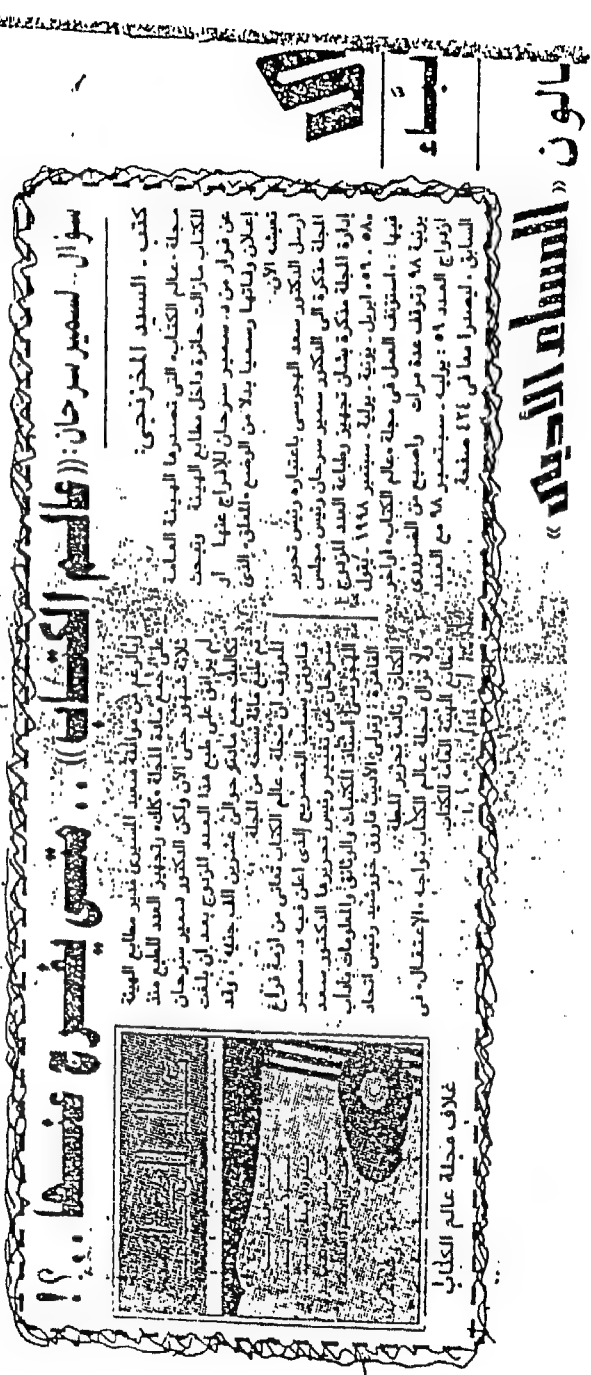 سؤال.. لسمير سرحان: «عالم الكتاب».. متى يفرج عنها ..؟!
كتب ـ السيد المخزنجى:
مجلة «عالم الكتاب» التى تصدرها الهيئة العامة
للكتاب مازالت حائرة داخل مطابع الهيئة وتبحث
عن قرار من د. سمير سرحان للإفراج عنها أو
إعلان وفاتها رسميا بدلا من الوضع «المعلق» الذى
تعيشه الآن.
أرسل الدكتور سعد الهجرسى باعتباره رئيس تحرير
المجلة مذكرة الى الدكتور سمير سرحان رئيس مجلس
إدارة المجلة مذكرة بشأن تجهيز وطباعة العدد المزدوج
٥٨ ـ ٥٩ ابريل ـ يونية ـ يولية ـ سبتمبر ١٩٩٨ يقول
فيها : «استؤنف العمل فى مجلة «عالم الكتاب» أواخر
يونية ٩٨ وتوقف عدة مرات وأصبح من الضرورى
ازدواج العدد ٥٩ : يوليه ـ سبتمبر ٩٨ مع العدد
السابق ليصدرا معا فى ٤٢٤ صفحة
وبالرغم من موافقة سعيد المسيرى مدير مطابع الهيئة
على جمع مادة المجلة «كلك» وتجهيز العدد للطبع منذ
ثلاثة شهور حتى الآن ولكن الدكتور سمير سرحان
لم يوافق على طبع هذا العدد المزدوج بعد ان بلغت
تكاليف جمع مادته حوالى عشرين الف جنيه ، وقد
تم طبع مائة نسخة من المجلة.
المعروف أن مجلة «عالم الكتاب» تعانى من أزمة فراغ
قانونى بسبب التصريح الذى أعلن فيه د. سمير
سرحان عن تغيير رئيس تحريرها الدكتور سعد
الهجرسى أستاذ المكتبات والوثائق والمعلومات بآداب
القاهرة ، وتولى الأديب فاروق خورشيد رئيس اتحاد
الكتاب رئاسة تحرير المجلة.
ولا تزال مجلة عالم الكتاب تواجه «الاعتقال» فى
مطابع الهيئة العامة للكتاب.
غلاف مجلة عالم الكتاب
«المساء الأدبى»